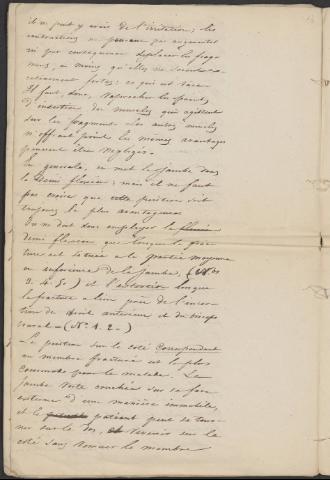 il n'y ait de l'irritation; les
contractions ne peuvent pas augmenter
ni par conséquent déplacer les frag
mens, a moins qu'elles ne soient
fortes; ce qui est rare
Il faut, donc, rapprocher les points
d'insertion des muscles qui agissent
sur les fragments les autres muscles
n'offrant point les mêmes avantages
peuvent être négligés.
En générale, on met la jambe dans
la demi flexion; mais il ne faut
pas croire que cette position soit
toujours la plus avantageuse
On ne doit donc employer la
demi flexion que lorsque la frac
ture est située a la partie moyenne
ou inférieure de la jambe, (Nos
3. 4. 5.) et l'extension lorsque
la fracture a lieu près de l'inser
tion du droit antérieur et du triceps
crural - (No. 1. 2 -)
La position sur le coté correspondant
au membre fracturé est la plus
commode pour le malade. La
jambe reste couchée sur sa face
externe d'une manière immobile,
et le patient peut se tour
ner sur le dos, et revenir sur le
coté sans remuer le membre